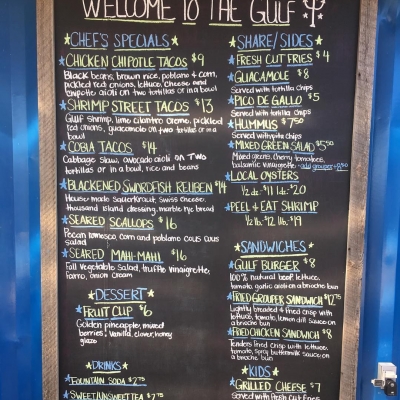 WELCOME TO THE GULF
CHEF'S SPECIALS
CHICKEN CHIPOTLE TACOS $9
Black beans, brown rice, poblano & corn,
pickled red onions, lettuce, cheese and
chipotle aioli on two tortillas or in a bowl
SHRIMP STREET TACOS $13
Gulf shrimp, lime cilantro creme, pickled
red onions, guacamole on two tortillas or in a
bowl
COBIA TACOS $14
Cabbage slaw, avocado aioli on TWO
tortillas or in a bowl, rice and beans
BLACKENED SWORDFISH REUBEN $14
House made sauerkraut, swiss cheese,
thousand island dressing, marble rye bread
SEARED SCALLOPS $16
Pecan romesco, corn and poblano cous cous
salad
SEARED MAHI-MAHI $16
Fall vegetable salad, truffle vinaigrette,
farro, onion cream
DESSERT
FRUIT CUP $6
Golden pineapple, mixed
berries, vanilla, clover honey
glaze
DRINKS
FOUNTAIN SODA $2.75
SWEET/UNSWEET TEA $2.75
SHARE/SIDES
FRESH CUT FRIES $4
GUACAMOLE $8
Served with tortilla chips
PICO DE GALLO $5
Served with tortilla chips
HUMMUS $7.50
Served with pita chips
MIXED GREEN SALAD $5.50
Mixed greens, cherry tomatoes,
balsamic vinaigrette - add grouper
LOCAL OYSTERS
1/2 dz. $11 1dz. $20
PEEL + EAT SHRIMP
1/2 lb. $12 lb. $19
SANDWICHES
GULF BURGER $8
100% natural beef, lettuce,
tomato, garlic aioli on a brioche bun
FRIED GROUPER SANDWICH $12.75
Lightly breaded & fried crisp with
lettuce, tomato, lemon dill sauce on
a brioche bun
FRIED CHICKEN SANDWICH $8
Tenders fried crisp with lettuce,
tomato, spicy buttermilk sauce on
a brioche bun
KIDS
GRILLED CHEESE $7
Served with fresh cut fries